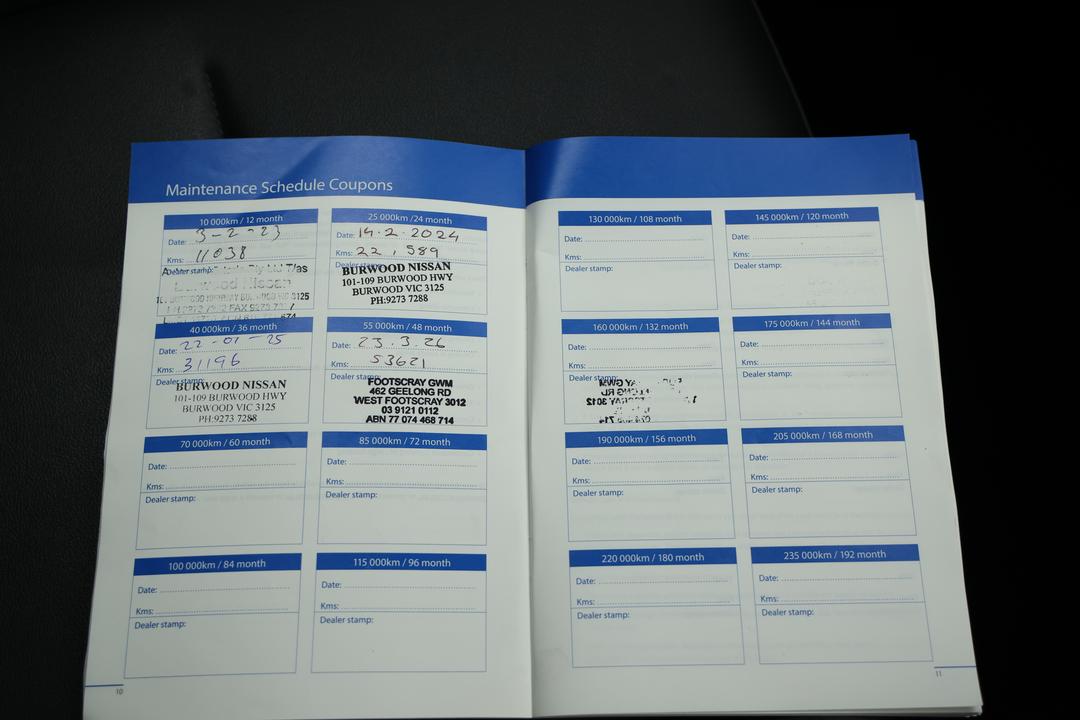 Maintenance Schedule Coupons
10 000km / 12 month
Date: 3-2-23
Kms: 11038
Dealer stamp:
Pty Ltd T/as
Burwood Nissan
25 000km /24 month
Date: 14.2.2024
Kms: 22,589
Dealer stamp:
BURWOOD NISSAN
101-109 BURWOOD HWY
BURWOOD VIC 3125
PH:9273 7288
40 000km / 36 month
Date: 22-01-25
Kms: 31196
Dealer stamp:
BURWOOD NISSAN
101-109 BURWOOD HWY
BURWOOD VIC 3125
PH:9273 7288
55 000km / 48 month
Date: 23.3.26
Kms: 53621
Dealer stamp:
FOOTSCRAY GWM
462 GEELONG RD
WEST FOOTSCRAY 3012
03 9121 0112
ABN 77 074 468 714
70 000km / 60 month
Date:
Kms:
Dealer stamp:
85 000km / 72 month
Date:
Kms:
Dealer stamp:
100 000km / 84 month
Date:
Kms:
Dealer stamp:
115 000km / 96 month
Date:
Kms:
Dealer stamp:
10
130 000km / 108 month
Date:
Kms:
Dealer stamp:
145 000km / 120 month
Date:
Kms:
Dealer stamp:
160 000km / 132 month
Date:
Kms:
Dealer stamp:
175 000km / 144 month
Date:
Kms:
Dealer stamp:
190 000km / 156 month
Date:
Kms:
Dealer stamp:
205 000km / 168 month
Date:
Kms:
Dealer stamp:
220 000km / 180 month
Date:
Kms:
Dealer stamp:
235 000km / 192 month
Date:
Kms:
Dealer stamp:
11